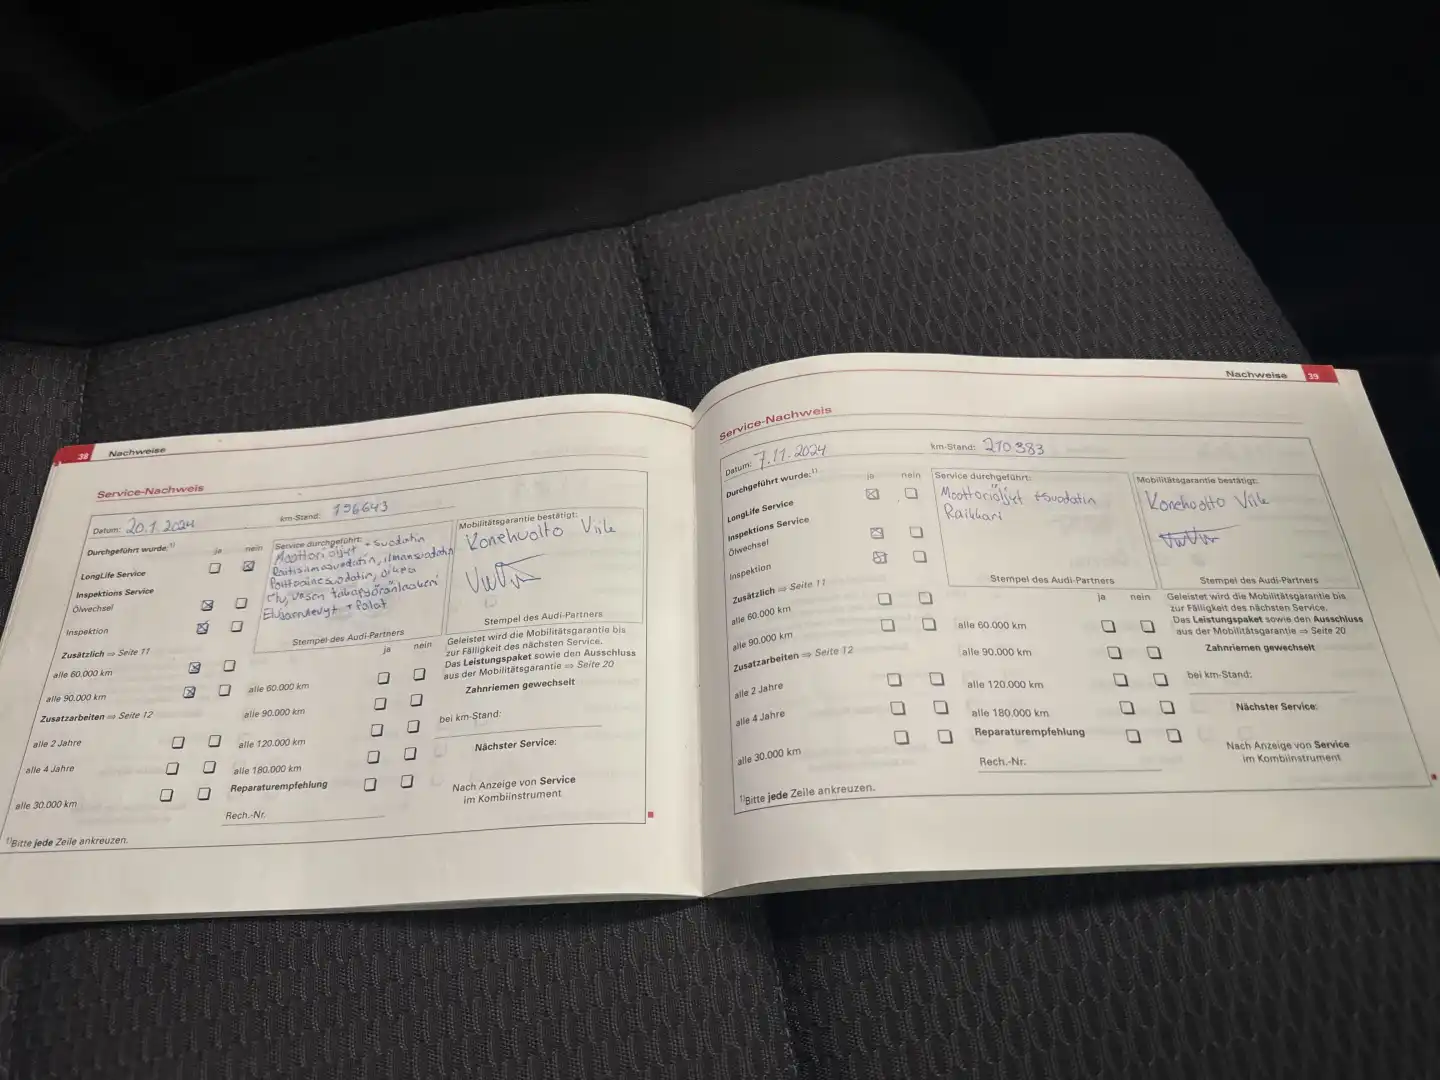 38 Nachweise
Service-Nachweis
Datum: 20.1.2024 km-Stand: 196643
Durchgeführt wurde:¹⁾ ja nein
LongLife Service
Inspektions Service
Ölwechsel
Inspektion
Zusätzlich ⇒ Seite 11
alle 60.000 km
alle 90.000 km
Zusatzarbeiten ⇒ Seite 12
alle 2 Jahre
alle 4 Jahre
alle 30.000 km
Service durchgeführt:
Moottoriöljyt + suodatin
Raitisilmasuodatin, ilmansuodatin
Polttoainesuodatin, oikea
etu, vasen takapyöränlaakeri
+ Palat
Stempel des Audi-Partners
ja nein
alle 60.000 km
alle 90.000 km
alle 120.000 km
alle 180.000 km
Reparaturempfehlung
Rech.-Nr.
Mobilitätsgarantie bestätigt:
Konehuolto Ville
Stempel des Audi-Partners
Geleistet wird die Mobilitätsgarantie bis
zur Fälligkeit des nächsten Service.
Das Leistungspaket sowie den Ausschluss
aus der Mobilitätsgarantie ⇒ Seite 20
Zahnriemen gewechselt
bei km-Stand:
Nächster Service:
Nach Anzeige von Service
im Kombiinstrument
¹⁾Bitte jede Zeile ankreuzen.
Nachweise 39
Service-Nachweis
Datum: 7.11.2024 km-Stand: 210383
Durchgeführt wurde:¹⁾ ja nein
LongLife Service
Inspektions Service
Ölwechsel
Inspektion
Zusätzlich ⇒ Seite 11
alle 60.000 km
alle 90.000 km
Zusatzarbeiten ⇒ Seite 12
alle 2 Jahre
alle 4 Jahre
alle 30.000 km
Service durchgeführt:
Moottoriöljyt + suodatin
Stempel des Audi-Partners
ja nein
alle 60.000 km
alle 90.000 km
alle 120.000 km
alle 180.000 km
Reparaturempfehlung
Rech.-Nr.
Mobilitätsgarantie bestätigt:
Konehuolto Ville
Stempel des Audi-Partners
Geleistet wird die Mobilitätsgarantie bis
zur Fälligkeit des nächsten Service.
Das Leistungspaket sowie den Ausschluss
aus der Mobilitätsgarantie ⇒ Seite 20
Zahnriemen gewechselt
bei km-Stand:
Nächster Service:
Nach Anzeige von Service
im Kombiinstrument
¹⁾Bitte jede Zeile ankreuzen.